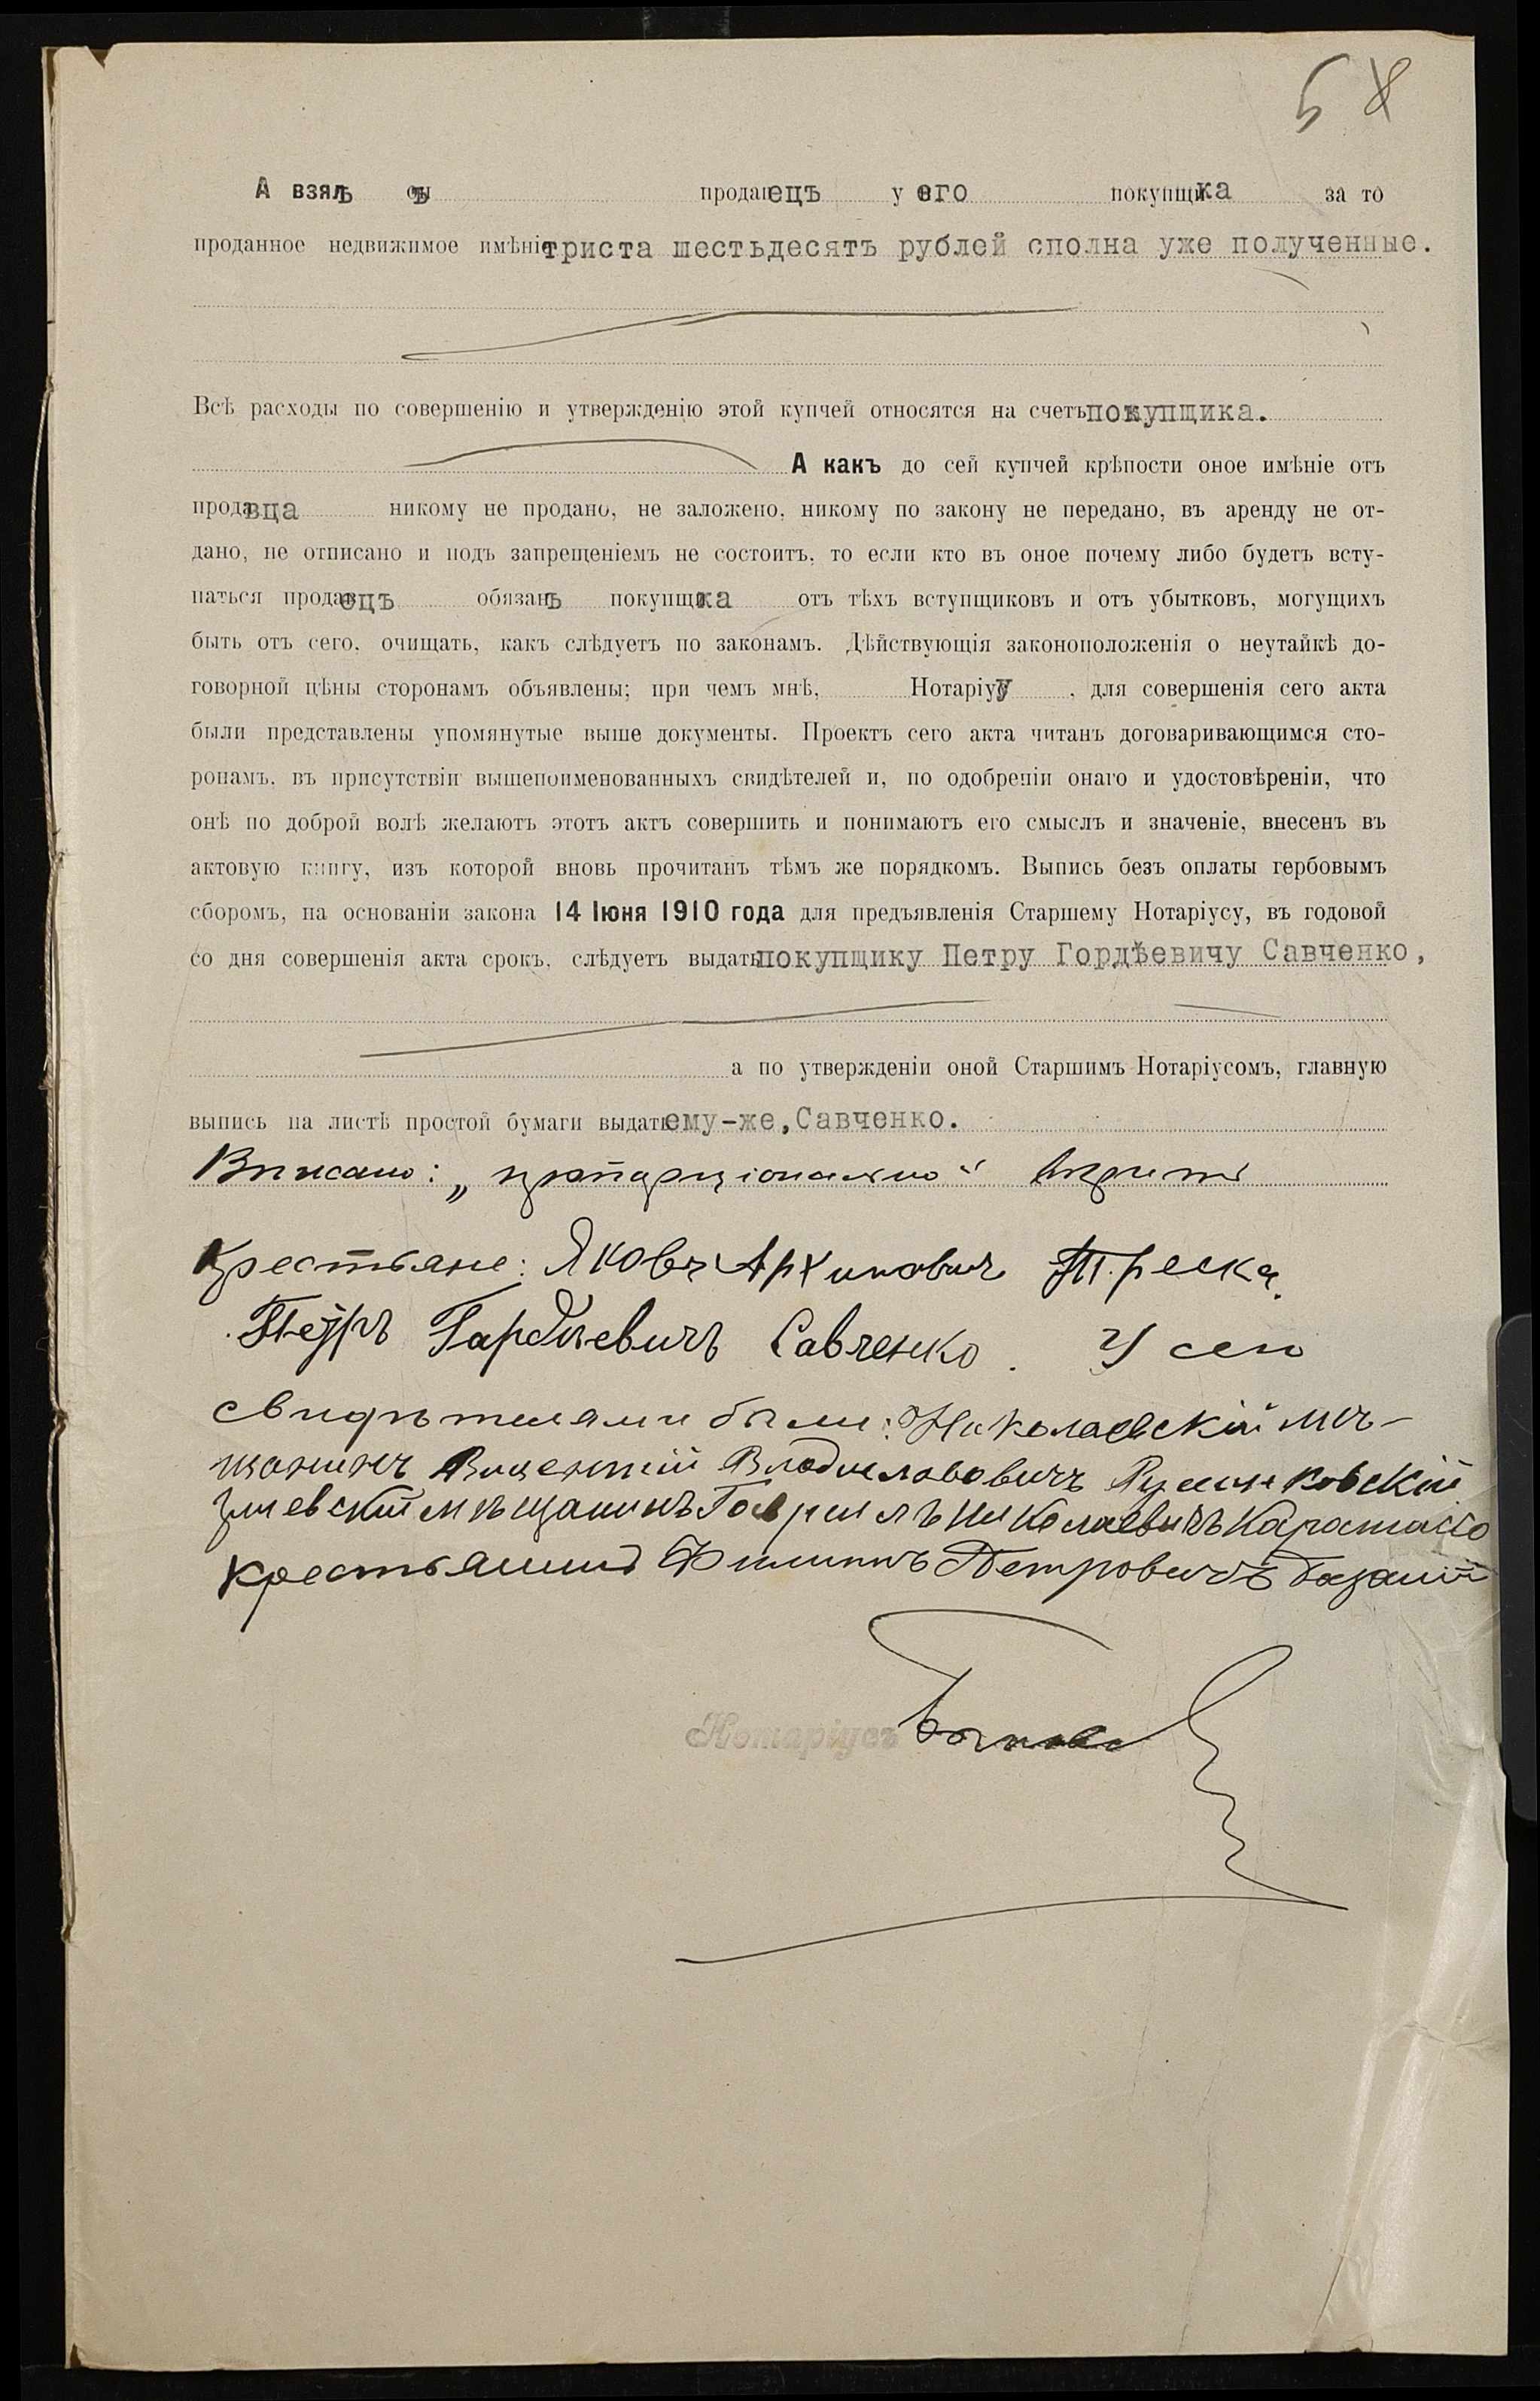 5 8
А взялъ съ продавецъ у него покупщика за то
проданное недвижимое имѣніе триста шестьдесятъ рублей сполна уже полученные.
Всѣ расходы по совершенію и утвержденію этой купчей относятся на счетъ покупщика.
А какъ до сей купчей крѣпости оное имѣніе отъ
продавца никому не продано, не заложено, никому по закону не передано, въ аренду не от-
дано, не отписано и подъ запрещеніемъ не состоитъ, то если кто въ оное почему либо будетъ всту-
паться продавецъ обязанъ покупщика отъ тѣхъ вступщиковъ и отъ убытковъ, могущихъ
быть отъ сего, очищать, какъ слѣдуетъ по законамъ. Дѣйствующія законоположенія о неутайкѣ до-
говорной цѣны сторонамъ объявлены; при чемъ мнѣ, Нотаріусу, для совершенія сего акта
были представлены упомянутые выше документы. Проектъ сего акта читанъ договаривающимся сто-
ронамъ, въ присутствіи вышепоименованныхъ свидѣтелей и, по одобреніи онаго и удостовѣреніи, что
онѣ по доброй волѣ желаютъ этотъ актъ совершить и понимаютъ его смыслъ и значеніе, внесенъ въ
актовую книгу, изъ которой вновь прочитанъ тѣмъ же порядкомъ. Выпись безъ оплаты гербовымъ
сборомъ, на основаніи закона 14 Іюня 1910 года для предъявленія Старшему Нотаріусу, въ годовой
со дня совершенія акта срокъ, слѣдуетъ выдать покупщику Петру Гордѣевичу Савченко,
а по утвержденіи оной Старшимъ Нотаріусомъ, главную
выпись на листѣ простой бумаги выдать ему-же, Савченко.
Вписано: „пропорціонально"
Крестьяне: Яковъ Архиповичъ
Петръ Гардѣевичъ Савченко. У сего
свидѣтелями были: Николаевскій мѣ-
щанинъ Викентій Владиславовичъ
мѣщанинъ Гавриилъ Николаевичъ
крестьянинъ Филиппъ Петровичъ
Нотаріусъ